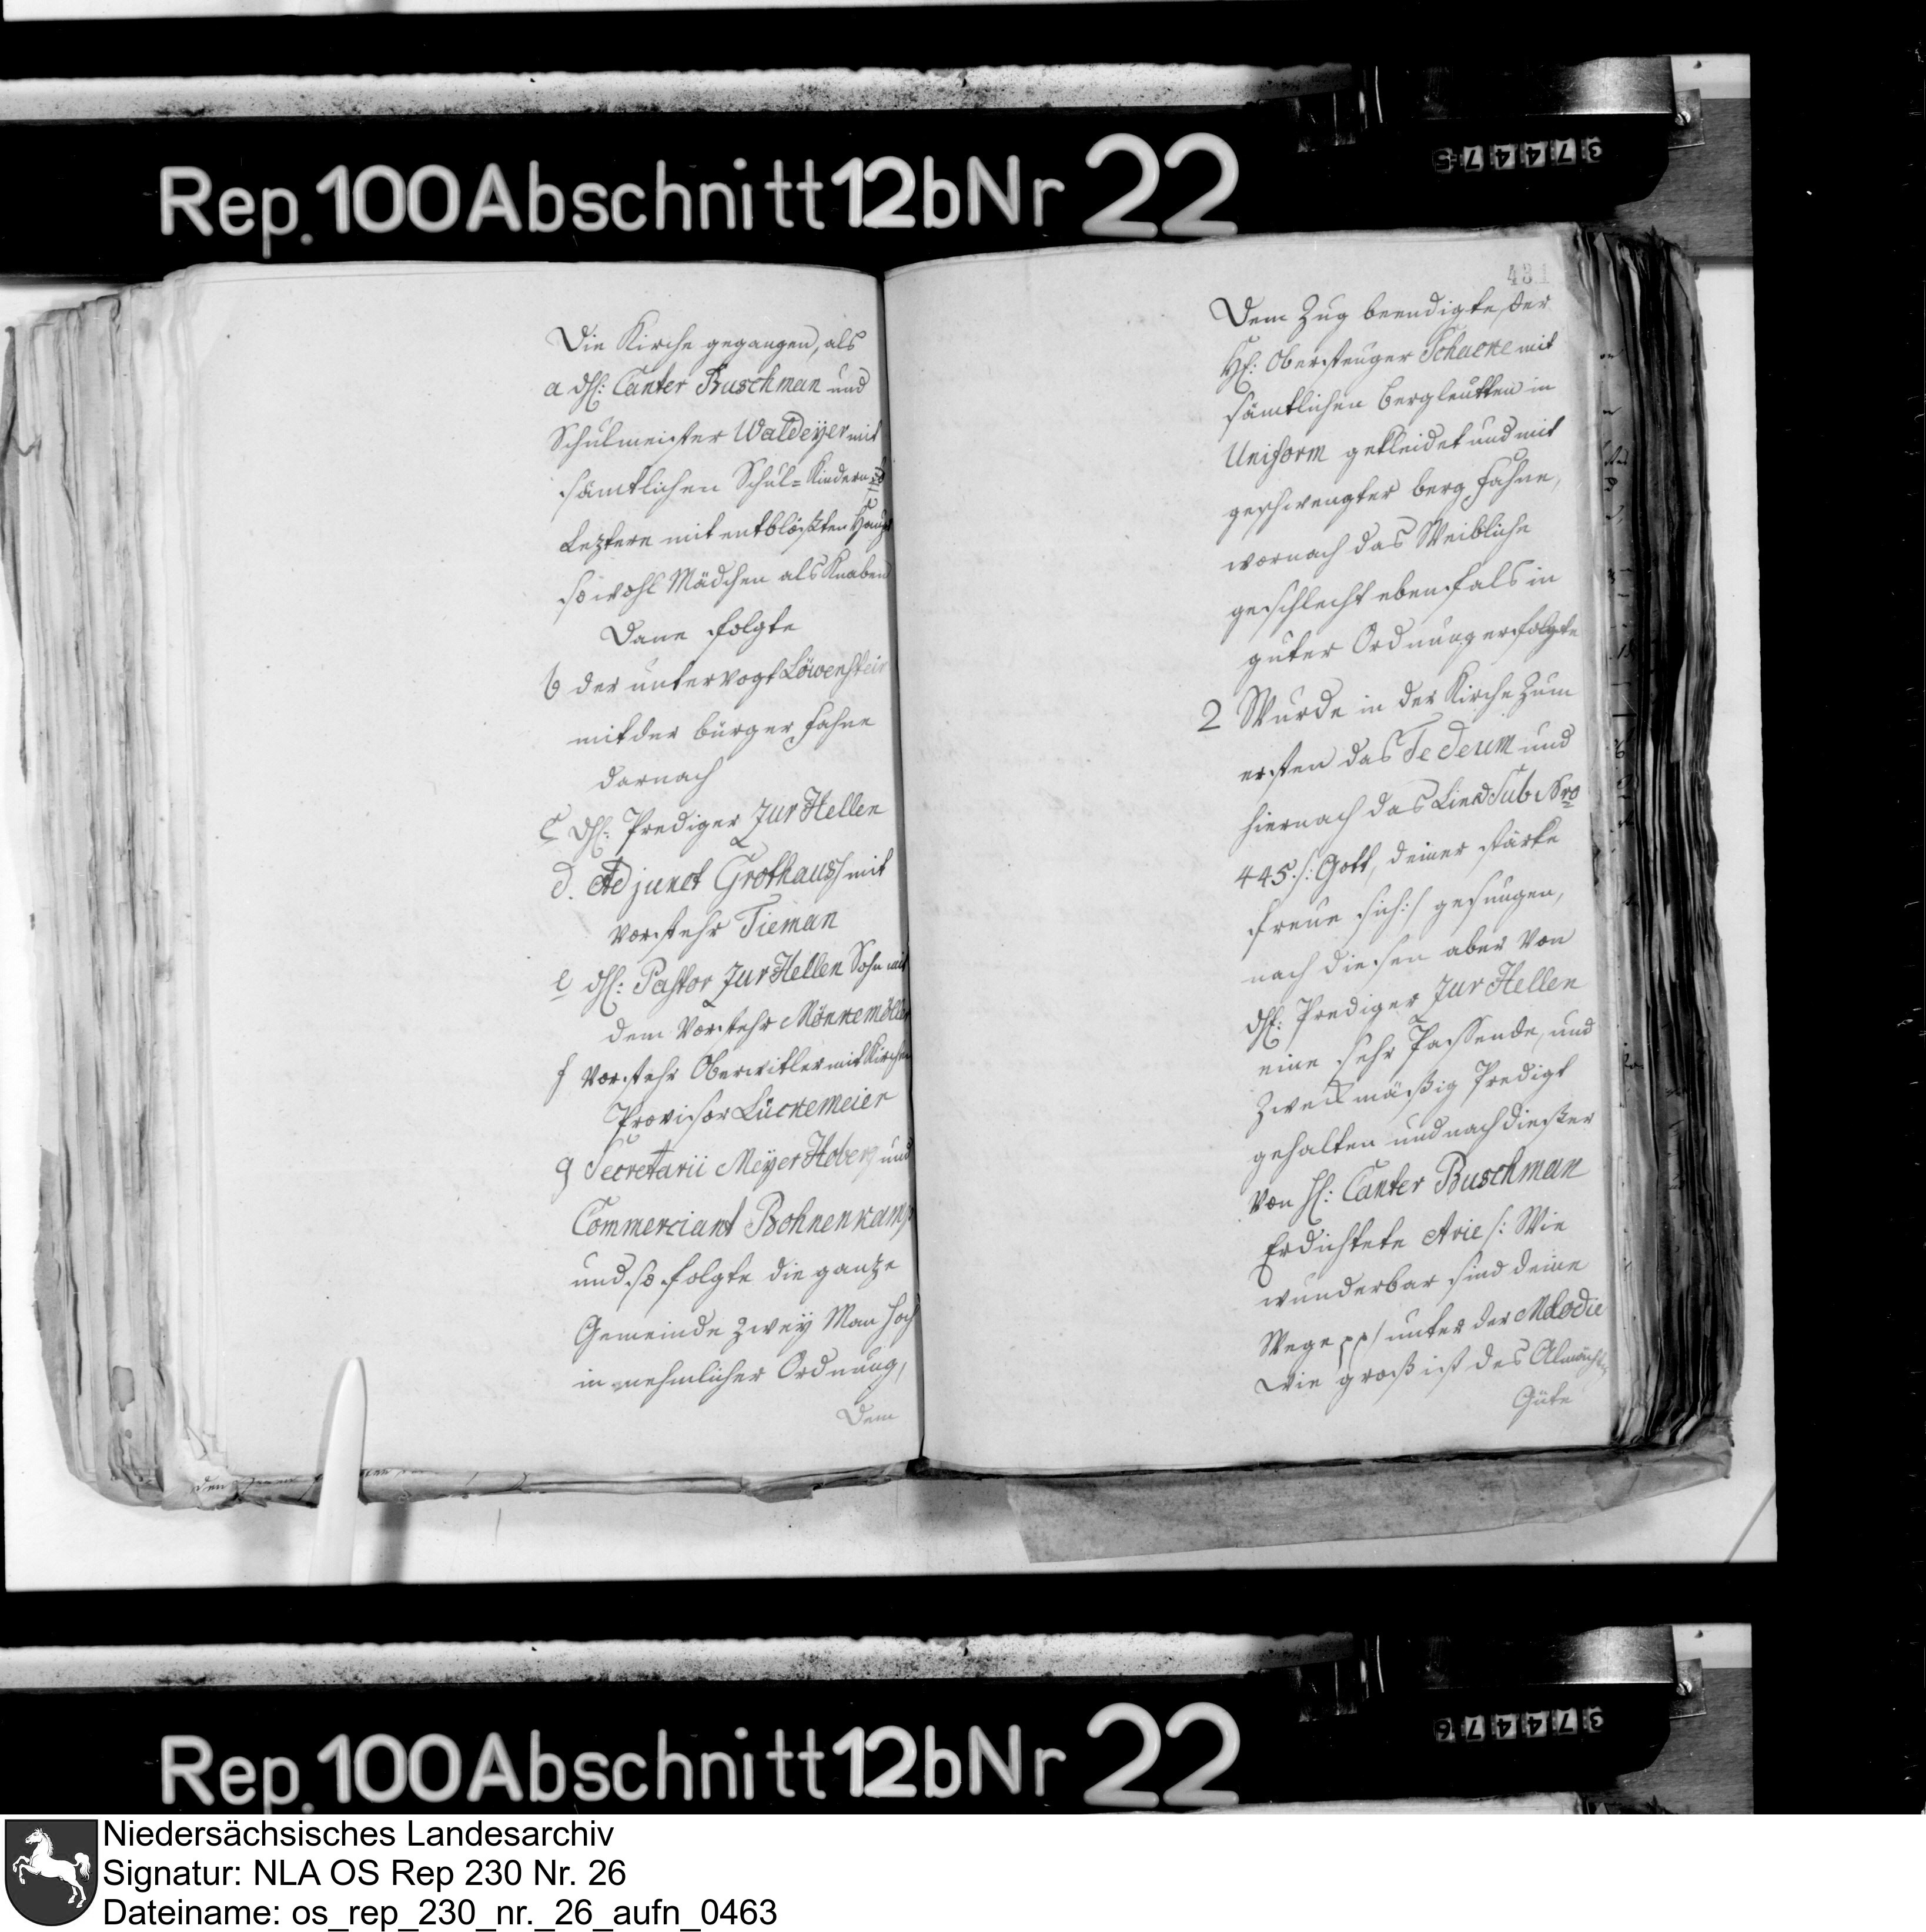 Rep. 100 Abschnitt 12b Nr 22
374475
Die Kirche gegangen, als
a H: Canter Buschman und
Schulmeister Waldeyer mit
sämtlichen Schul=Kindern
Leztere mit entblösten Haupt
so wohl Mädchen als Knaben
Dann folgte
b der untervogt Löwenstein
mit der bürger fahne
darnach
c H: Prediger Zur Hellen
d. Adjunct Grothaus mit
Vorstehr Tieman
e H: Pastor Zur Hellen Sohn mit
dem Vorstehr Mönkemöller
f Vorstehr Oberwitler mit Kirchen
Provisor Lückemeier
g Secretarii Meyer Hoberg und
Commerciant Bohnenkamp
und so folgte die gantze
Gemeinde zwey Man hoch
in nehmlicher Ordnung,
Dem
431
Dem Zug beendigte der
H: Obersteuger Schacke mit
sämtlichen bergleutten in
Uniform gekleidet und mit
geschwengter berg fahne,
wornach das Weibliche
geschlecht ebenfals in
guter Ordnung erfolgte
2 Wurde in der Kirche Zum
ersten das Te deum und
hiernach das Lied Sub Nro
445. /: Gott, deiner stärke
freue sich :/ gesungen,
nach diesen aber Von
H: Prediger Zur Hellen
eine sehr Passende, und
zweckmäßig Predigt
gehalten und nach dießer
Von H: Canter Buschman
Erdichtete Arie /: Wie
wunderbar sind deine
Wege pp / unter der Melodie
wie groß ist des Almächt
Güte
Rep. 100 Abschnitt 12b Nr 22
374476
Niedersächsisches Landesarchiv
Signatur: NLA OS Rep 230 Nr. 26
Dateiname: os_rep_230_nr._26_aufn_0463